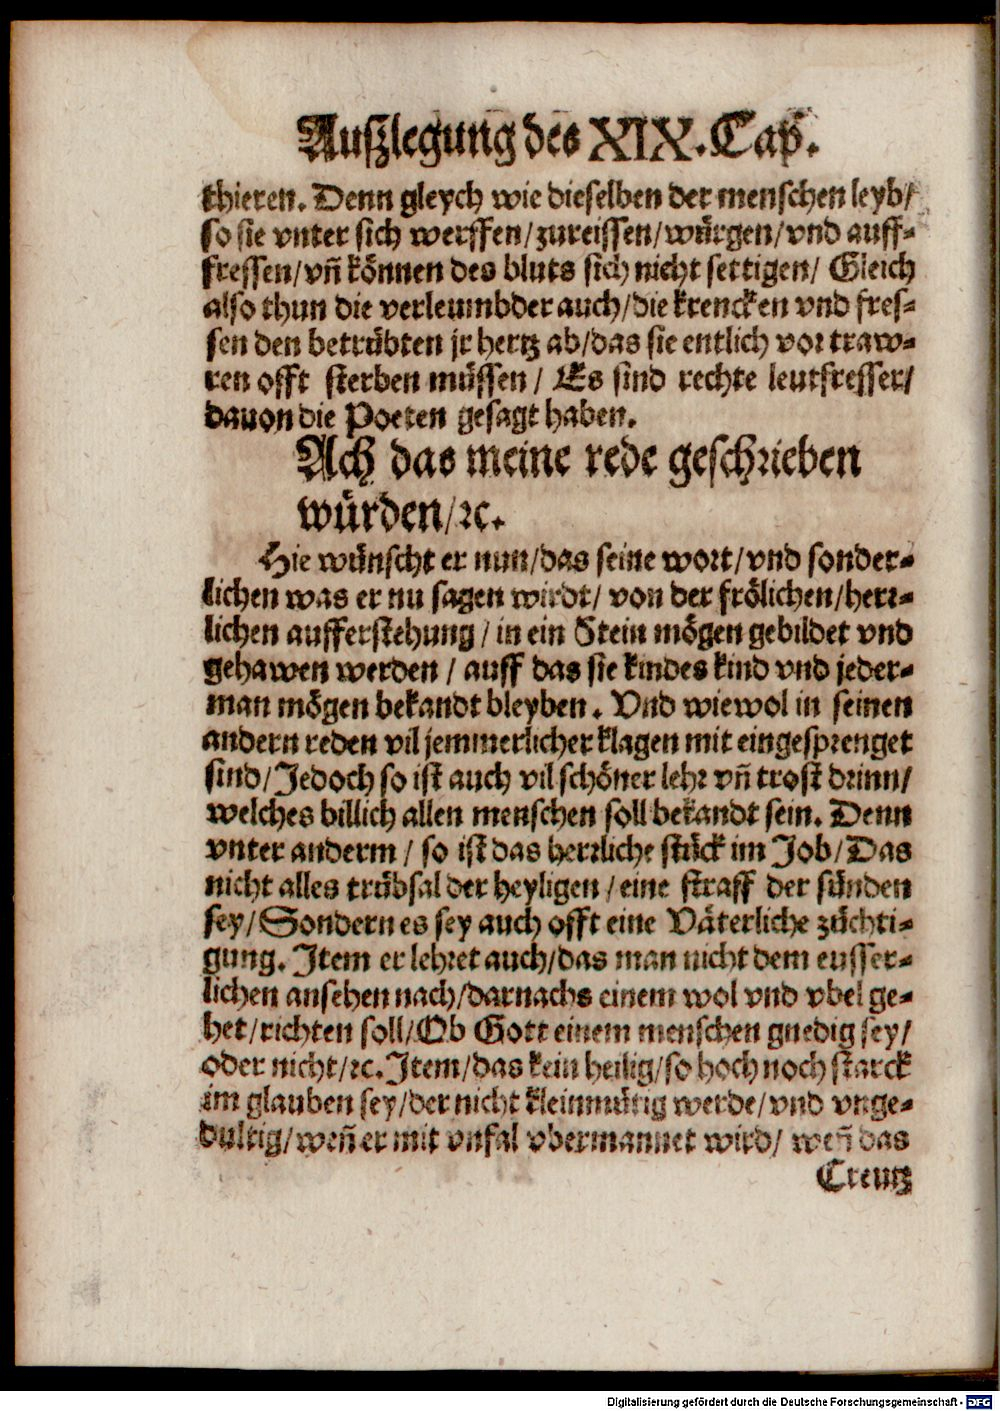 Auſzlegung des XIX. Cap.
thieren. Denn gleych wie dieſelben der menſchen leyb/
ſo ſie vnter ſich werffen/zureiſſen/würgen/vnd auff-
freſſen/vñ können des bluts ſich nicht ſettigen/ Gleich
alſo thun die verleumbder auch/die krencken vnd freſ-
ſen den betrübten jr hertz ab/das ſie entlich vor traw-
ren offt ſterben müſſen / Es ſind rechte leutfreſſer/
dauon die Poeten geſagt haben.
Ach das meine rede geſchrieben
würden/ꝛc.
Hie wünſcht er nun/das ſeine wort/vnd ſonder-
lichen was er nu ſagen wirdt/ von der frölichen/herr-
lichen aufferſtehung / in ein Stein mögen gebildet vnd
gehawen werden / auff das ſie kindes kind vnd jeder-
man mögen bekandt bleyben. Vnd wiewol in ſeinen
andern reden vil jemmerlicher klagen mit eingeſprenget
ſind/Jedoch ſo iſt auch vil ſchöner lehr vñ troſt drinn/
welches billich allen menſchen ſoll bekandt ſein. Denn
vnter anderm / ſo iſt das herrliche ſtück im Job/Das
nicht alles trübſal der heyligen /eine ſtraff der ſünden
ſey/Sondern es ſey auch offt eine Väterliche züchti-
gung. Item er lehret auch/das man nicht dem euſſer-
lichen anſehen nach/darnachs einem wol vnd vbel ge-
het/richten ſoll/Ob Gott einem menſchen gnedig ſey/
oder nicht/ꝛc. Item/das kein heilig/ſo hoch noch ſtarck
im glauben ſey/der nicht kleinmütig werde/vnd vnge-
dultig/weñ er mit vnfal vbermannet wird/ weñ das
Creutz
Digitalisierung gefördert durch die Deutsche Forschungsgemeinschaft - DFG